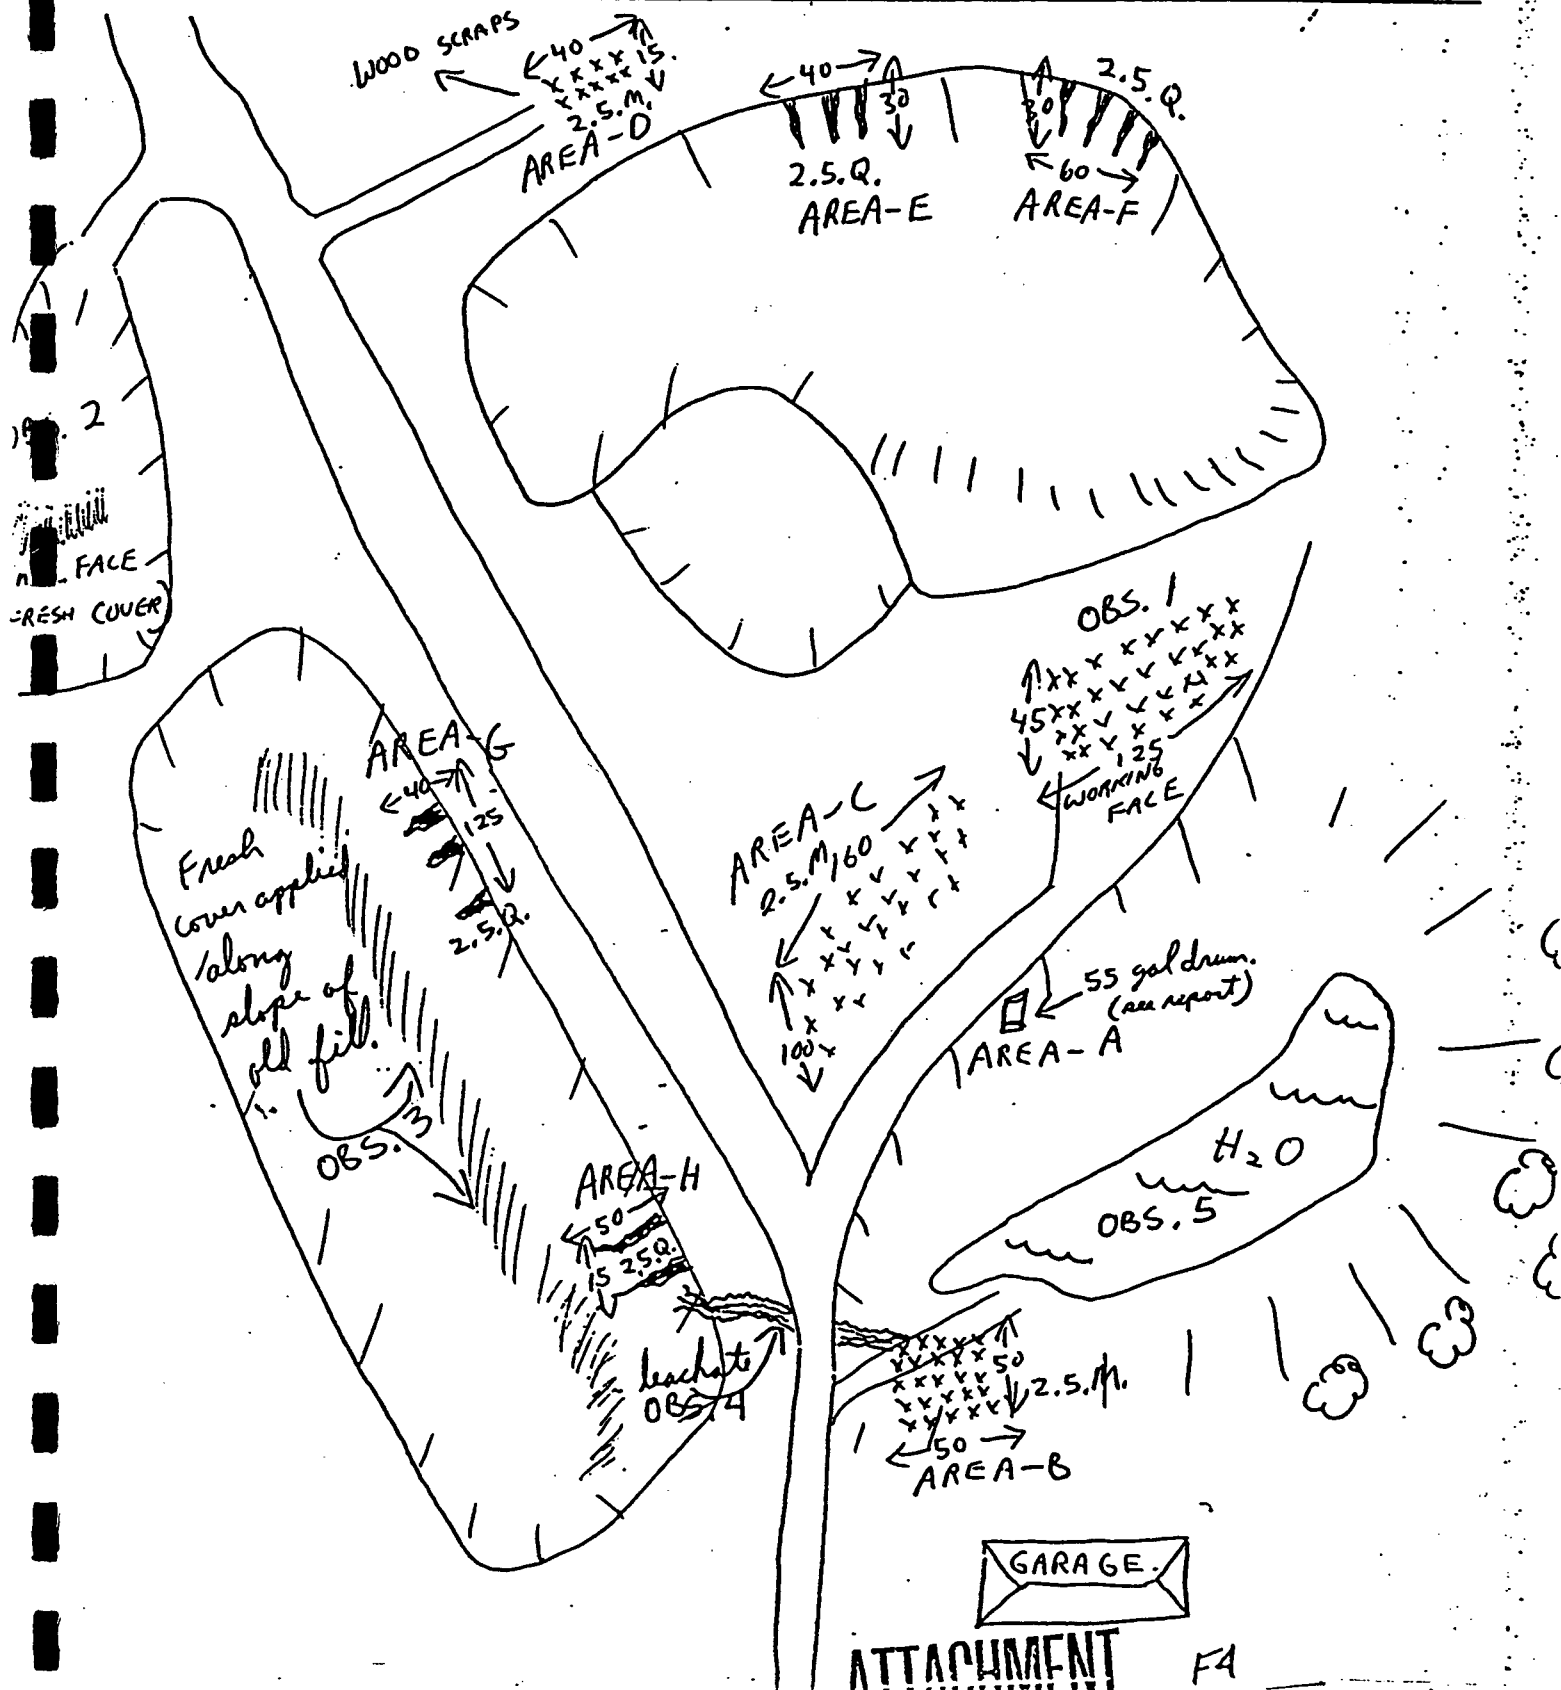 WOOD SCRAPS
40
15.
2.5.M.
AREA-D
40
30
2.5.Q.
AREA-E
2.5.Q.
30
60
AREA-F
2
FACE
FRESH COVER)
OBS. 1
45
125
WORKING
FACE
AREA-G
40
125
2.5.Q.
AREA-C
2.5.M.
160
100
Fresh
cover applied
along
slope of
old fill.
OBS. 3
55 gal drum.
(see report)
AREA-A
H2O
OBS. 5
AREA-H
50
15
2.5.Q.
leachate
OBS. 4
50
2.5.M.
50
AREA-B
GARAGE.
ATTACHMENT F4